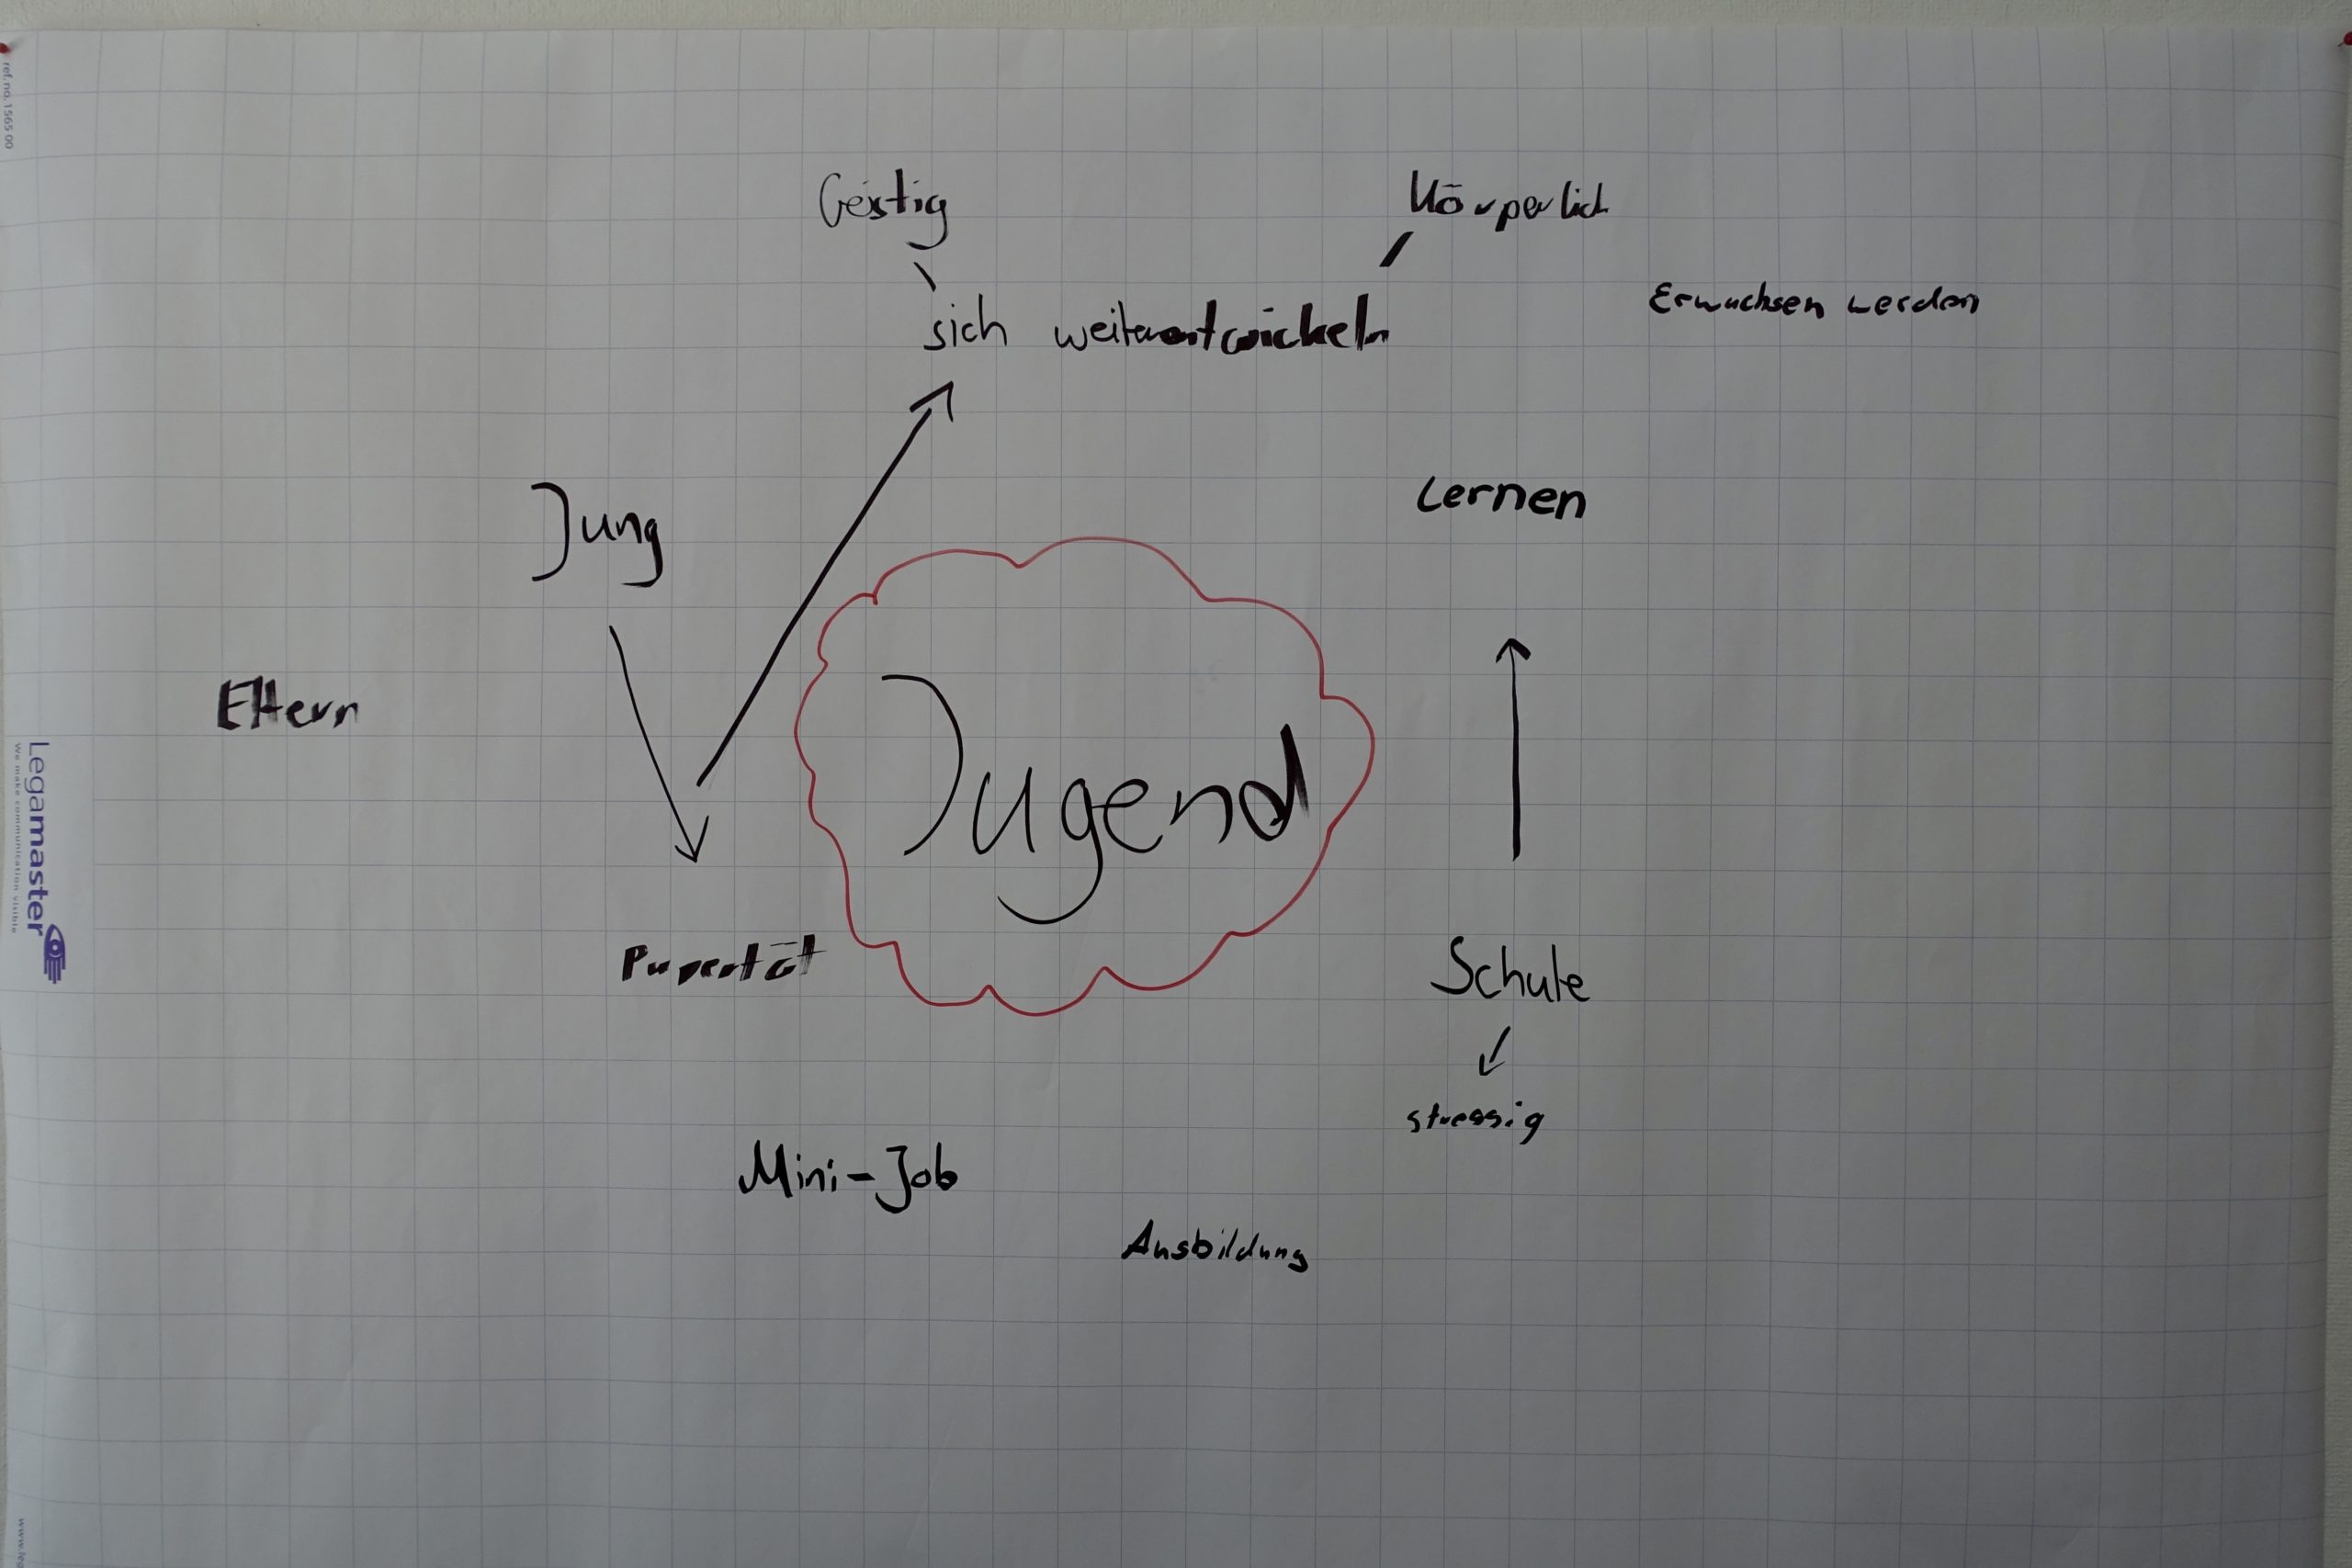 ref. no. 1565 00
Geistig
Körperlich
sich weiterentwickeln
Erwachsen werden
Jung
Lernen
Eltern
Jugend
Pupertät
Schule
stressig
Mini-Job
Ausbildung
Legamaster
we make communication visible